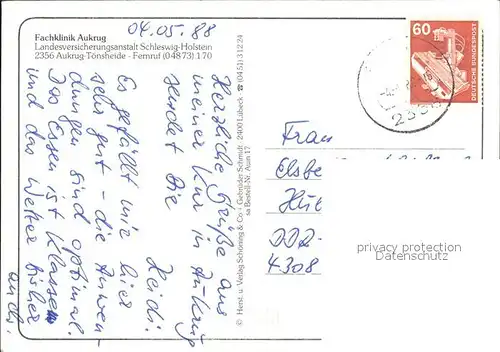 04.05.88
Fachklinik Aukrug
Landesversicherungsanstalt Schleswig-Holstein
2356 Aukrug-Tönsheide - Fernruf (04873) 1 70
Herzliche Grüße aus
meiner Kur in Aukrug
sendet Die
Heidi.
Es gefällt mir hier
sehr gut - die Anwen-
dungen sind optimal.
Das Essen ist Klasse
und das Wetter bisher
auch.
© Herst. u. Verlag Schöning & Co · Gebrüder Schmidt · 2400 Lübeck ☎ (0451) 31224
sa Bestell-Nr. Auin 17
60
DEUTSCHE BUNDESPOST
Frau
Elsbe
Hüt
DDR-
4308
privacy protection